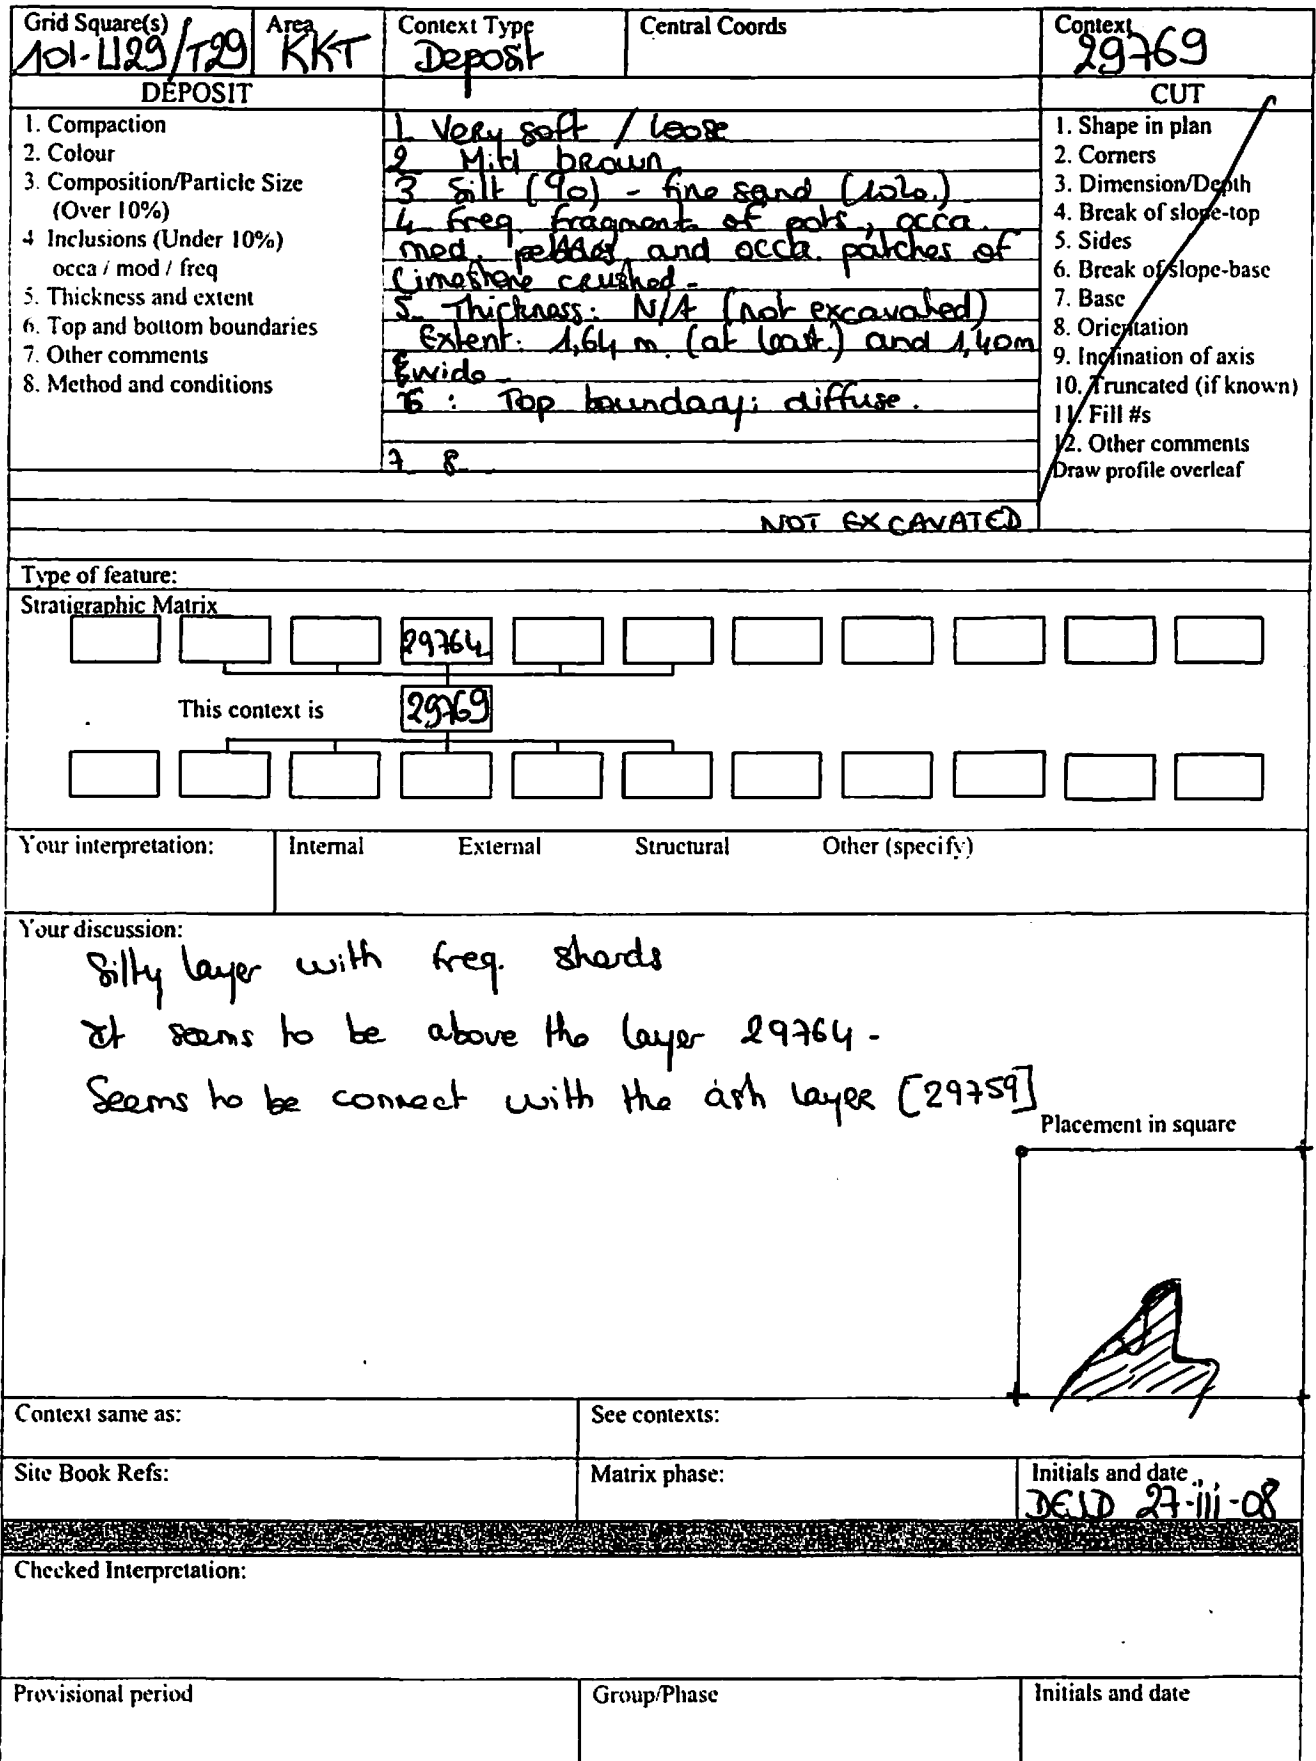 Grid Square(s) Area Context Type Central Coords Context
101-U29/T29 KKT Deposit 29769
DEPOSIT CUT
1. Compaction
2. Colour
3. Composition/Particle Size
(Over 10%)
4 Inclusions (Under 10%)
occa / mod / freq
5. Thickness and extent
6. Top and bottom boundaries
7. Other comments
8. Method and conditions
1. Very soft / loose
2 Mid brown
3 Silt (90) - fine sand (10%)
4 Freq. fragments of pots, occa.
med. pebbles, and occa. patches of
limestone crushed -
5. Thickness: N/A (not excavated)
Extent: 1,64 m. (at least.) and 1,40m
wide -
6 : Top boundary: diffuse.
7 8-
NOT EXCAVATED
1. Shape in plan
2. Corners
3. Dimension/Depth
4. Break of slope-top
5. Sides
6. Break of slope-base
7. Base
8. Orientation
9. Inclination of axis
10. Truncated (if known)
11. Fill #s
12. Other comments
Draw profile overleaf
Type of feature:
Stratigraphic Matrix
29764
This context is 29769
Your interpretation: Internal External Structural Other (specify)
Your discussion:
Silty layer with freq. sherds
It seems to be above the layer 29764 -
Seems to be connect with the ash layer [29759]
Placement in square
Context same as: See contexts:
Site Book Refs: Matrix phase: Initials and date
27-iii-08
Checked Interpretation:
Provisional period Group/Phase Initials and date